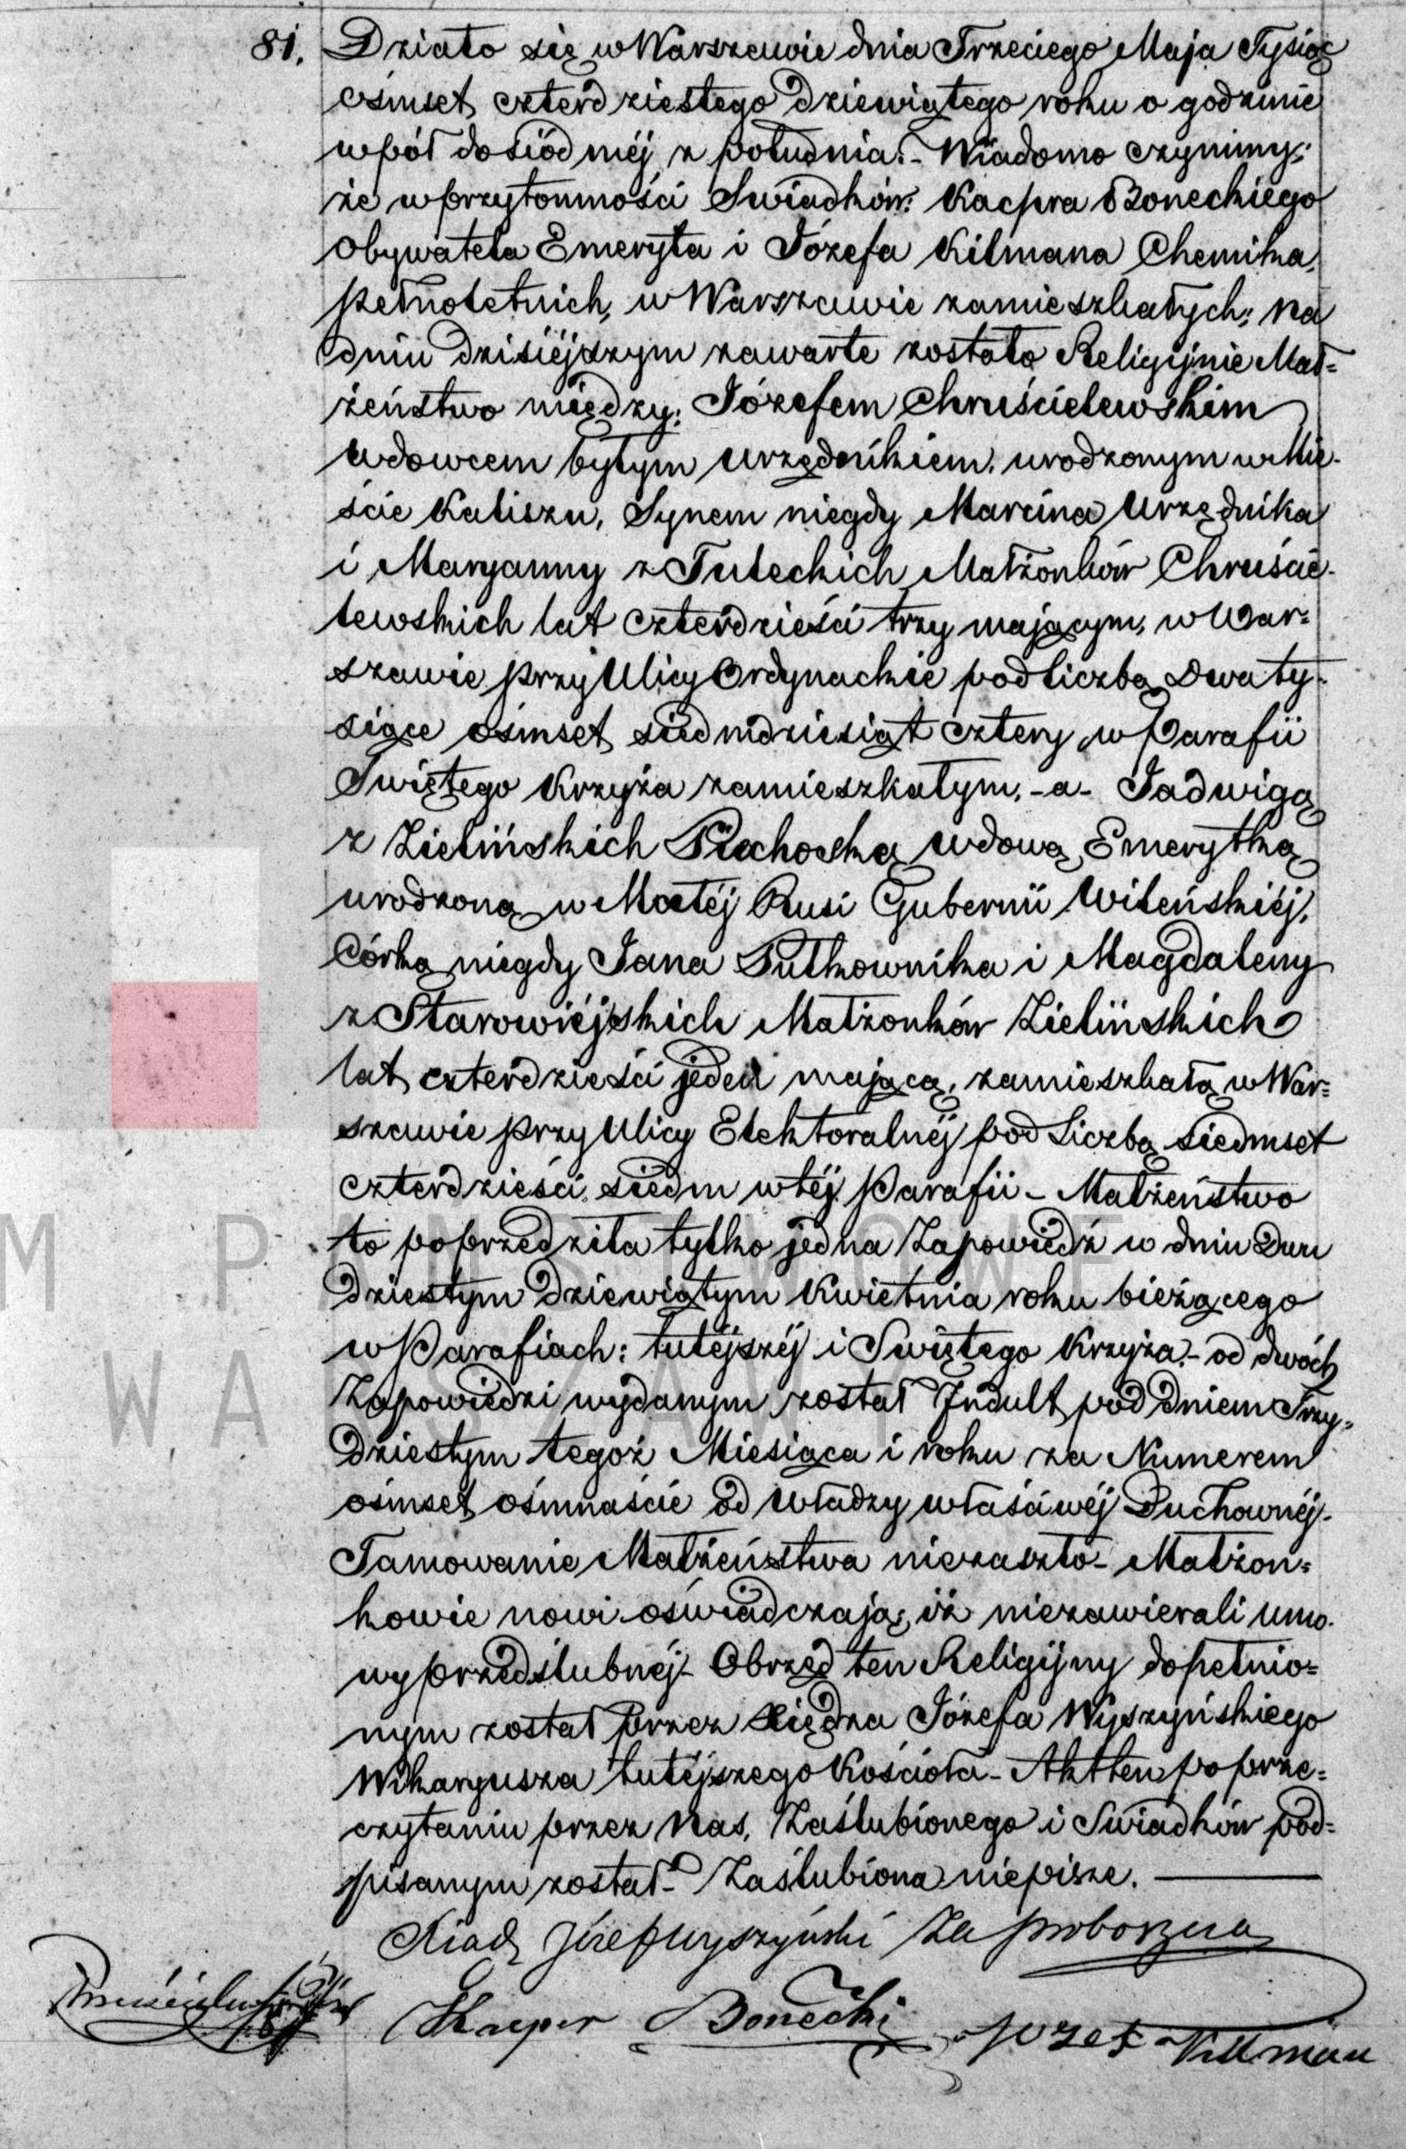 81. Działo się w Warszawie dnia Trzeciego Maja Tysiąc
ośmset czterdziestego dziewiątego roku o godzinie
wpół do siódméj z południa.- Wiadomo czynimy;
że w przytomności Swiadków: Kacpra Boneckiego
Obywatela Emeryta i Józefa Kilmana Chemika,
pełnoletnich, w Warszawie zamieszkałych; na
dniu dzisiéjszym zawarte zostało Religijnie Mał=
żeństwo między: Józefem Chruścielewskim
wdowcem byłym urzędnikiem, urodzonym w Mie-
ście Kaliszu, Synem niegdy Marcina Urzędnika
i Maryanny z Tuleckich Małżonków Chruście-
lewskich lat czterdzieści trzy mającym, w War=
szawie przy Ulicy Ordynackie pod liczbą Dwa ty-
siące ośmset siedmdziesiąt cztery, w Parafii
Swiętego Krzyża zamieszkałym, - a - Jadwigą
z Zielińskich Piechocką wdową, Emerytką
urodzoną w Małéj Rusi Gubernii Wileńskiéj,
Córką niegdy Jana Pułkownika i Magdaleny
z Starowiéjskich Małżonków Zielińskich
lat czterdzieści jeden mającą, zamieszkałą w War=
szawie przy Ulicy Elektoralnéj pod Liczbą siedmset
czterdzieści siedm w téj Parafii - Małżeństwo
to poprzedziła tylko jedna Zapowiedź w dniu Dwu
dziestym dziewiątym Kwietnia roku bieżącego
w Parafiach: tutéjszéj i Swiętego Krzyża - od dwóch
Zapowiedzi wydanym został Indult pod dniem Trzy=
dziestym tegoż Miesiąca i roku za Numerem
ośmset ośmnaście od Władzy właściwéj Duchownéj.
Tamowanie Małżeństwa niezaszło - Małżon=
kowie nowi oświadczają, iż niezawierali umo-
wy przedślubnéj - Obrzęd ten Religijny dopełnio=
nym został przez Xiędza Józefa Wyszyńskiego
Wikaryusza tutéjszego Kościoła - Akt ten po prze=
czytaniu przez Nas, Zaślubionego i Swiadków pod=
pisanym został - Zaślubiona niepisze.
Xiądz Józef Wyszyński Za proboszcza
Kacper Bonecki Józef Killman